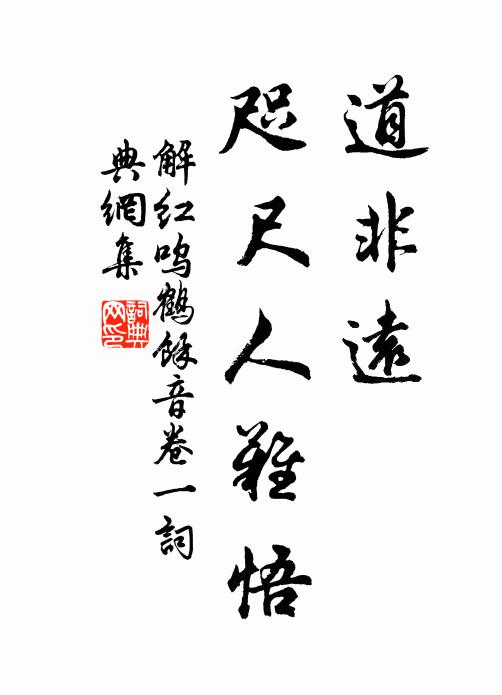 道非遠
咫尺人難悟
解红鸣鶴餘音卷一詞
典網集
詞典
网印